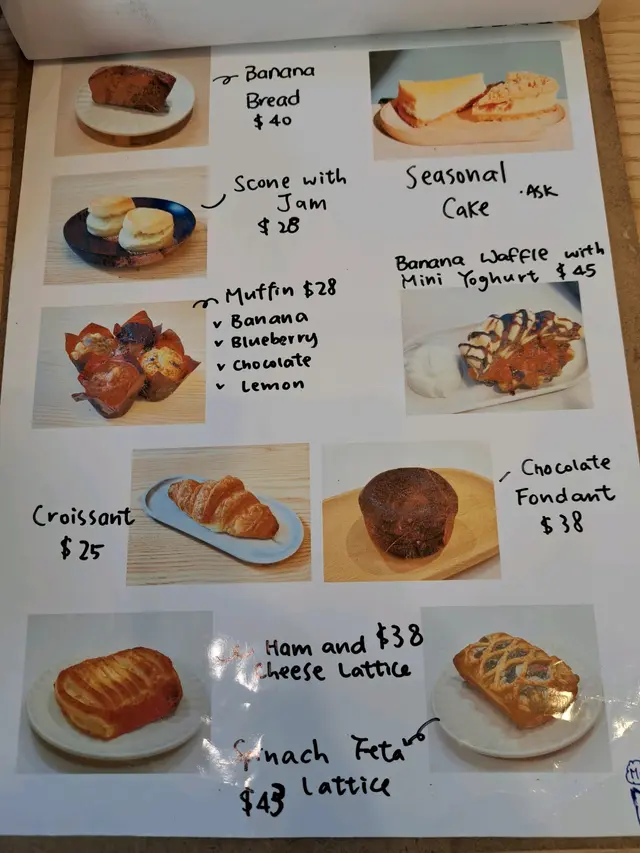 Banana
Bread
$40
Seasonal
Cake
·ASK
Scone with
Jam
$28
Banana Waffle with
Mini Yoghurt $45
Muffin $28
✓ Banana
✓ Blueberry
✓ Chocolate
✓ Lemon
Croissant
$25
Chocolate
Fondant
$38
Ham and $38
Cheese Lattice
Spinach Feta
Lattice
$43